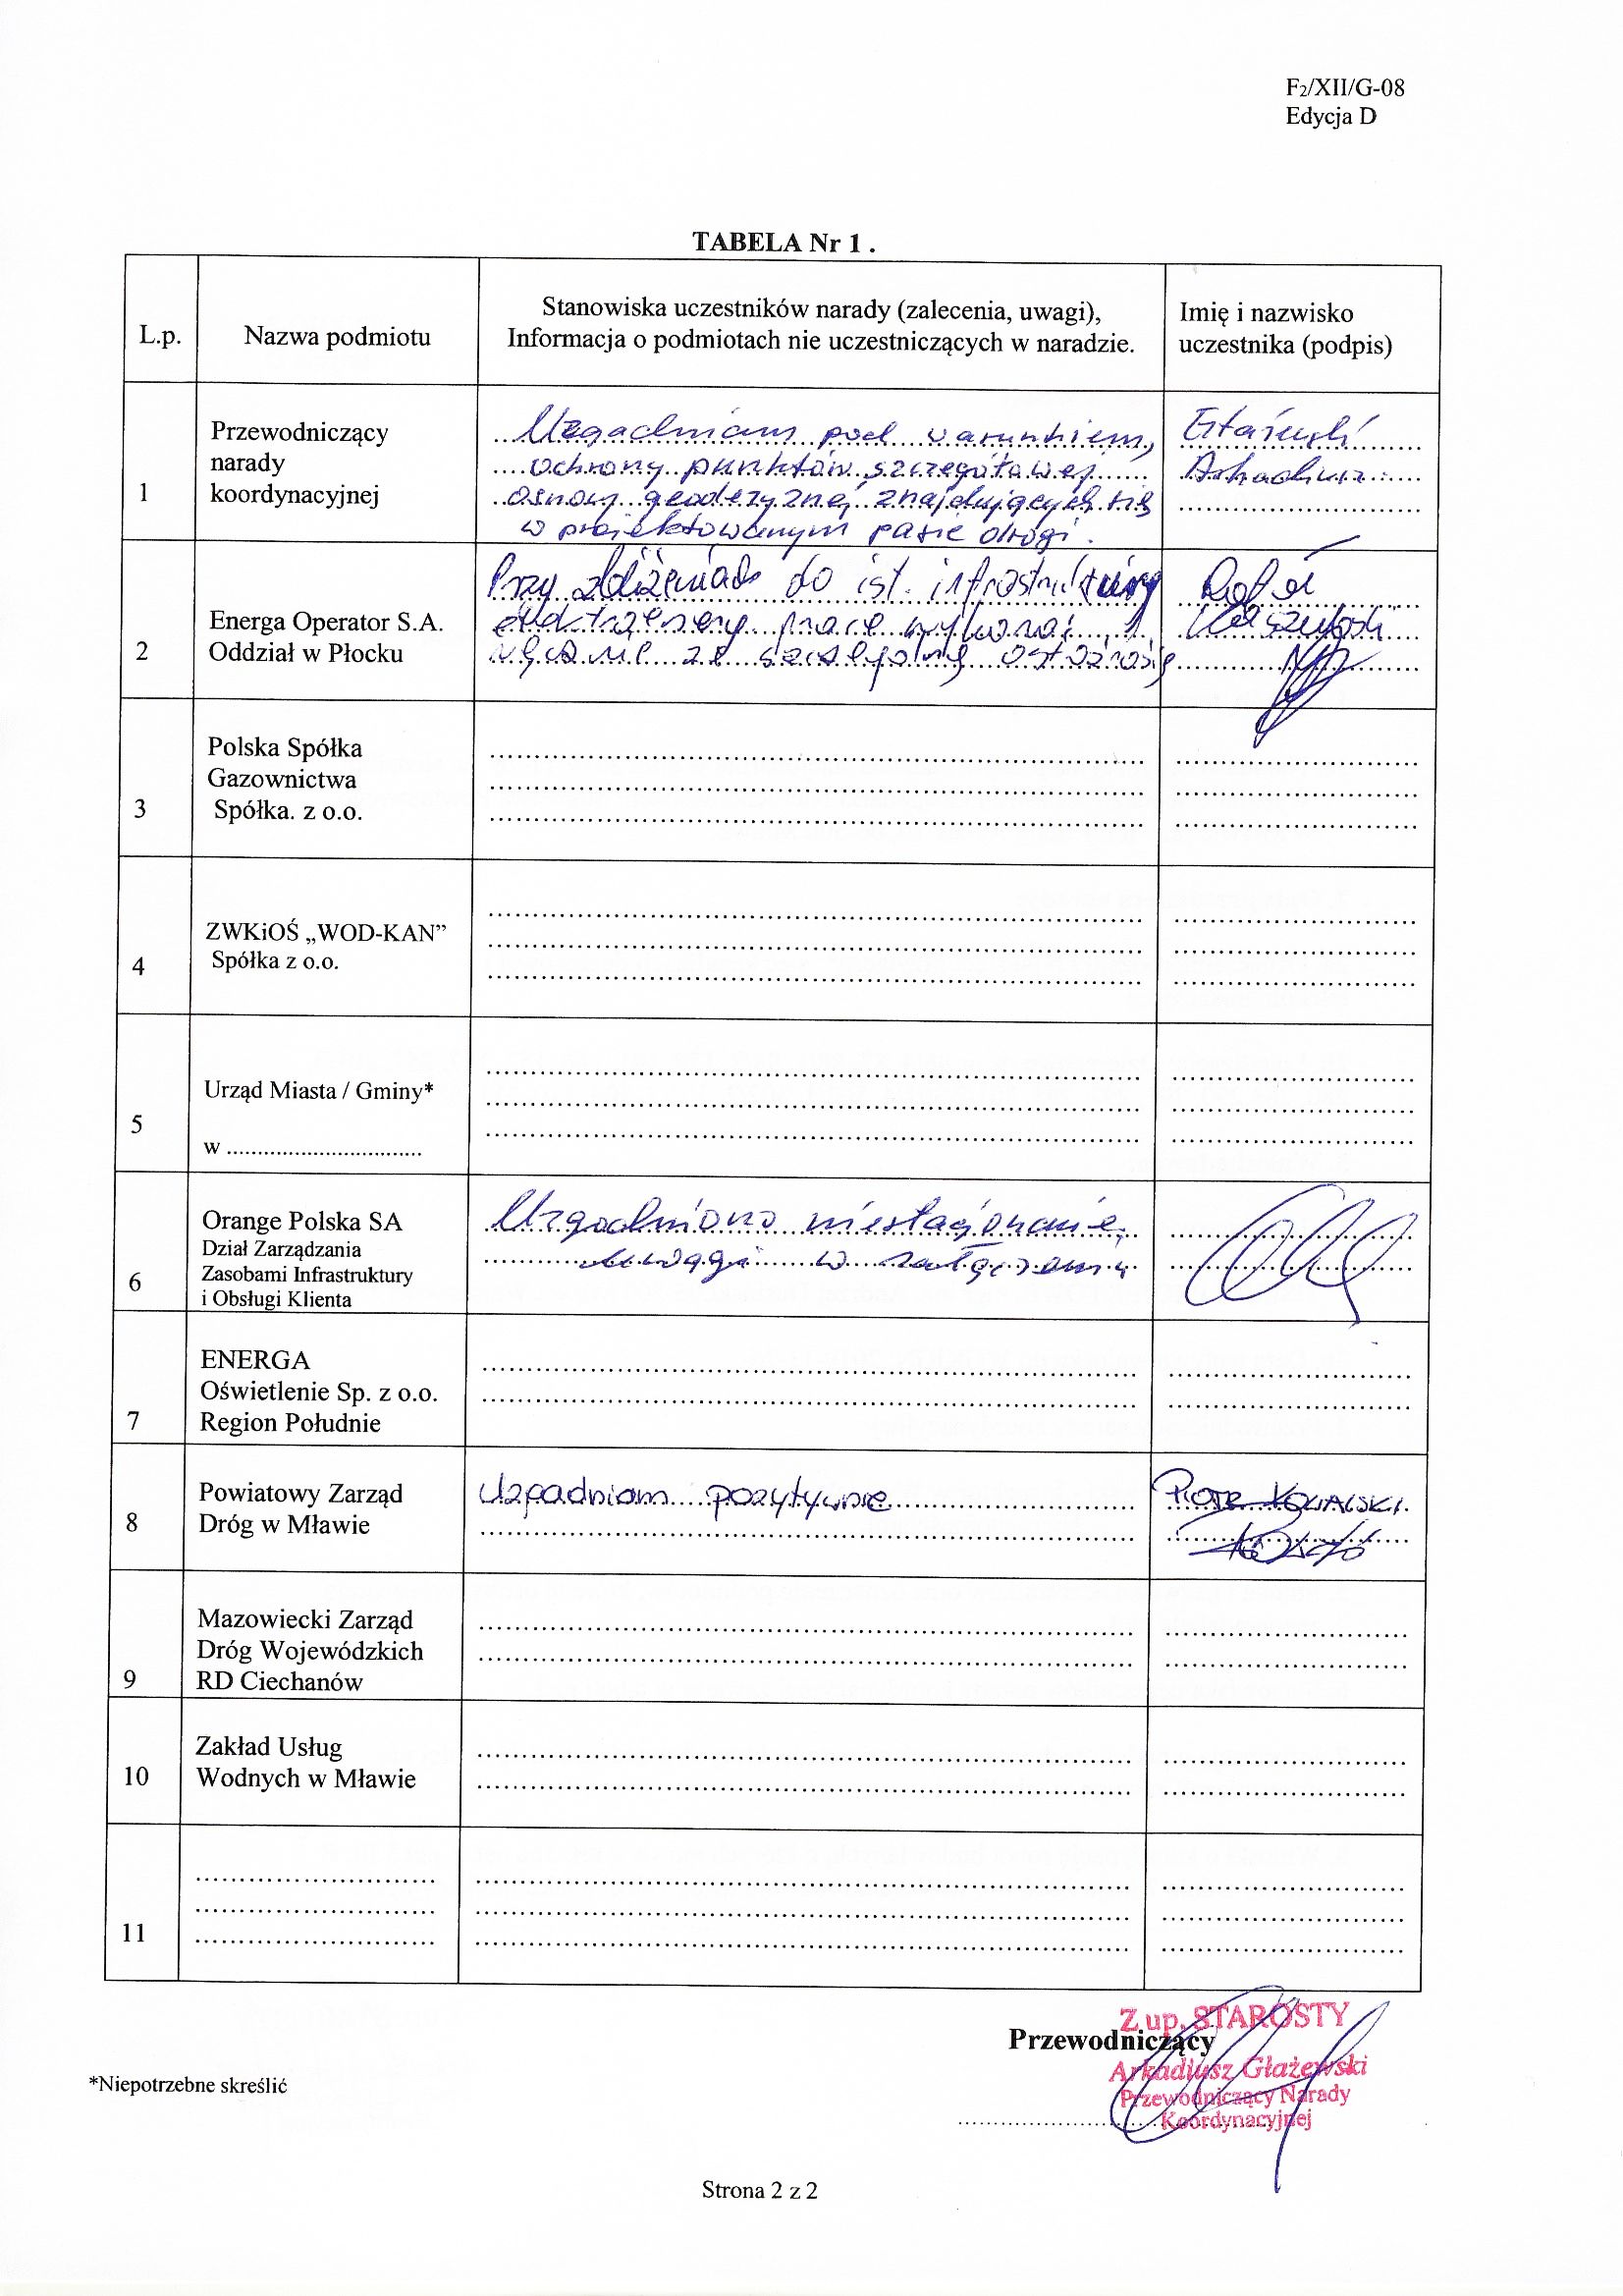 F2/XII/G-08
Edycja D
TABELA Nr 1 .
L.p.
Nazwa podmiotu
Stanowiska uczestników narady (zalecenia, uwagi),
Informacja o podmiotach nie uczestniczących w naradzie.
Imię i nazwisko
uczestnika (podpis)
1
Przewodniczący
narady
koordynacyjnej
Uzgadniam pod warunkiem,
ochrony punktów szczegółowej
osnowy geodezyjnej znajdujących się
w projektowanym pasie drogi.
Arkadiusz
2
Energa Operator S.A.
Oddział w Płocku
Przy zbliżeniach do ist. infrastruktury
prace wykonać
ręcznie ze szczególną
Rafał
3
Polska Spółka
Gazownictwa
Spółka. z o.o.
4
ZWKiOŚ „WOD-KAN”
Spółka z o.o.
5
Urząd Miasta / Gminy*
w ................................
6
Orange Polska SA
Dział Zarządzania
Zasobami Infrastruktury
i Obsługi Klienta
Uzgodniono niestacjonarnie,
uwagi w załączeniu
7
ENERGA
Oświetlenie Sp. z o.o.
Region Południe
8
Powiatowy Zarząd
Dróg w Mławie
Uzgadniam pozytywnie
PIOTR KOWALSKI
9
Mazowiecki Zarząd
Dróg Wojewódzkich
RD Ciechanów
10
Zakład Usług
Wodnych w Mławie
11
Przewodniczący
Z up. STAROSTY
Arkadiusz Głażewski
Przewodniczący Narady
Koordynacyjnej
*Niepotrzebne skreślić
Strona 2 z 2